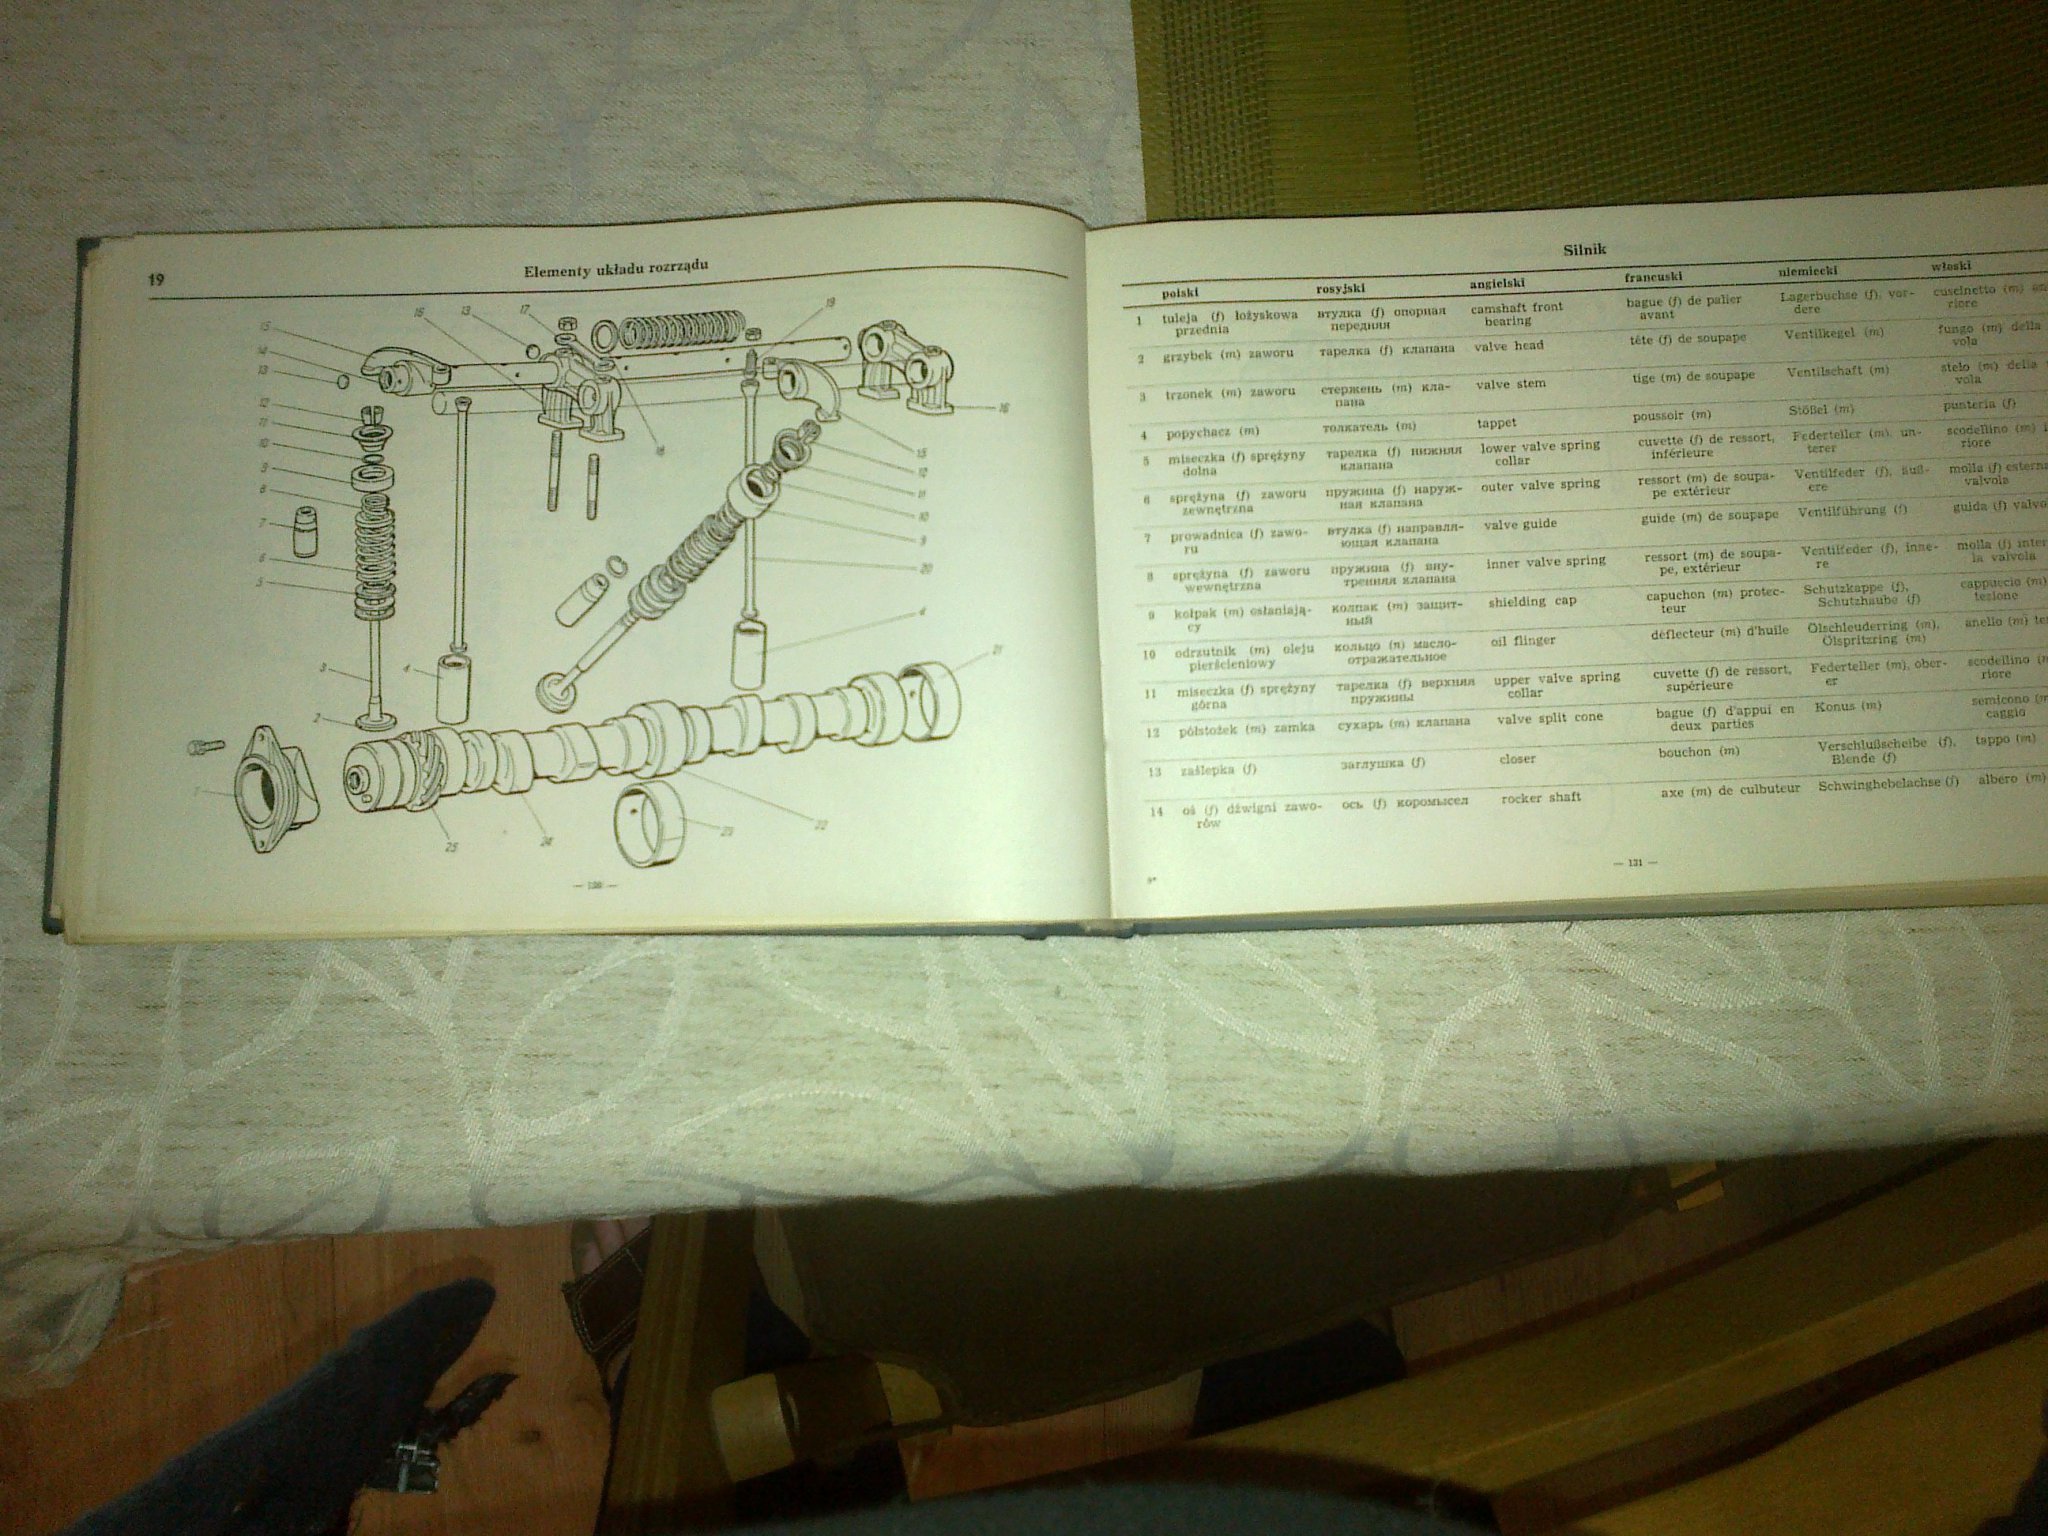 19
Elementy układu rozrządu
15
16
13
17
19
14
13
12
11
10
9
8
7
6
5
3
2
4
18
16
15
12
11
10
9
20
4
21
1
25
24
23
22
Silnik
polski rosyjski angielski francuski niemiecki włoski
1 tuleja (f) łożyskowa втулка (f) опорная camshaft front bague (f) de palier Lagerbuchse (f), vor- cuscinetto (m)
przednia передняя bearing avant dere riore
2 grzybek (m) zaworu тарелка (f) клапана valve head tête (f) de soupape Ventilkegel (m) fungo (m) della
vola
3 trzonek (m) zaworu стержень (m) кла- valve stem tige (m) de soupape Ventilschaft (m) stelo (m) della
пана vola
4 popychacz (m) толкатель (m) tappet poussoir (m) Stößel (m) punteria (f)
5 miseczka (f) sprężyny тарелка (f) нижняя lower valve spring cuvette (f) de ressort, Federteller (m), un- scodellino (m)
dolna клапана collar inférieure terer riore
6 sprężyna (f) zaworu пружина (f) наруж- outer valve spring ressort (m) de soupa- Ventilfeder (f), äuß- molla (f) esterna
zewnętrzna ная клапана pe extérieur ere valvola
7 prowadnica (f) zawo- втулка (f) направля- valve guide guide (m) de soupape Ventilführung (f) guida (f) valvo
ru ющая клапана
8 sprężyna (f) zaworu пружина (f) вну- inner valve spring ressort (m) de soupa- Ventilfeder (f), inne- molla (f) inter
wewnętrzna тренняя клапана pe, extérieur re la valvola
9 kołpak (m) osłaniają- колпак (m) защит- shielding cap capuchon (m) protec- Schutzkappe (f), cappuccio (m)
cy ный teur Schutzhaube (f) tezione
10 odrzutnik (m) oleju кольцо (n) масло- oil flinger déflecteur (m) d'huile Ölschleuderring (m), anello (m)
pierścieniowy отражательное Ölspritzring (m)
11 miseczka (f) sprężyny тарелка (f) верхняя upper valve spring cuvette (f) de ressort, Federteller (m), ober- scodellino
górna пружины collar supérieure er riore
12 półstożek (m) zamka сухарь (m) клапана valve split cone bague (f) d'appui en Konus (m) semicono
deux parties caggio
13 zaślepka (f) заглушка (f) closer bouchon (m) Verschlußscheibe (f), tappo (m)
Blende (f)
14 oś (f) dźwigni zawo- ось (f) коромысел rocker shaft axe (m) de culbuteur Schwinghebelachse (f) albero (m)
rów
— 131 —
9*